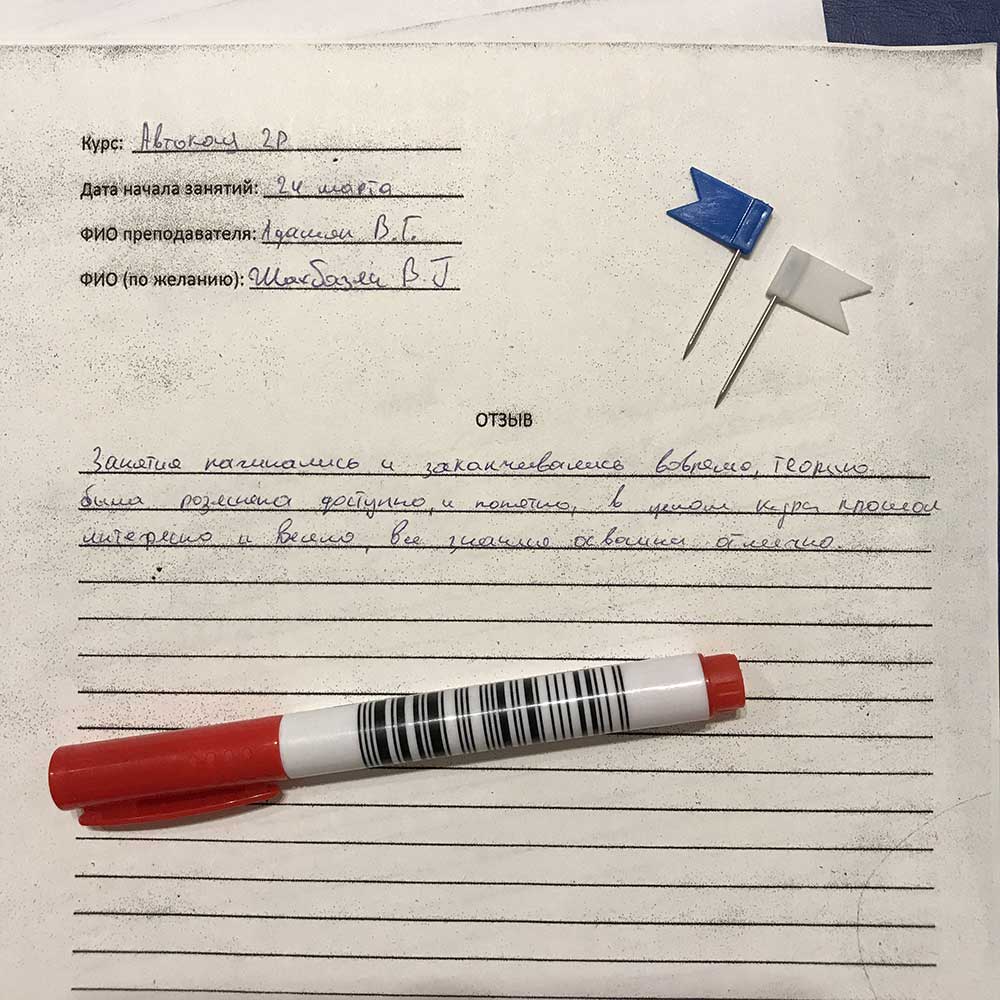 Курс: Автокад 2D
Дата начала занятий: 24 марта
ФИО преподавателя: Адамян В.Г.
ФИО (по желанию): Шахбазян В Г
ОТЗЫВ
Занятия начинались и заканчивались вовремя, теория
была розяснена доступно, и понятно, в целом курс прошел
интересно и весело, все знания освоены отлично.